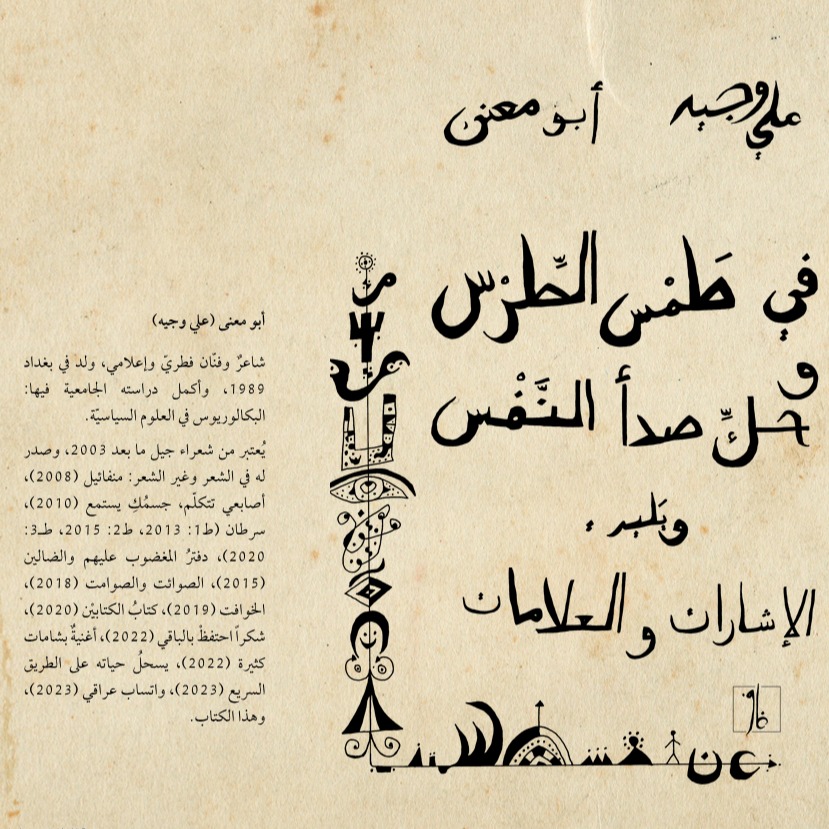 علي وجيه
أبو معنى
في طَمْس الطِّرْس
و
حكِّ صدأ النَّفْس
ويَليه:
الإشارات والعلامات
أبو معنى (علي وجيه)
شاعرٌ وفنّان فطريّ وإعلامي، ولد في بغداد
1989، وأكمل دراسته الجامعية فيها:
البكالوريوس في العلوم السياسيّة.
يُعتبر من شعراء جيل ما بعد 2003، وصدر
له في الشعر وغير الشعر: منفائيل (2008)،
أصابعي تتكلّم، جسمُكِ يستمع (2010)،
سرطان (ط1: 2013، ط2: 2015، طـ3:
2020)، دفترُ المغضوب عليهم والضالين
(2015)، الصوائت والصوامت (2018)،
الخوافت (2019)، كتابُ الكتابيْن (2020)،
شكراً احتفظْ بالباقي (2022)، أغنيةٌ بشامات
كثيرة (2022)، يسحلُ حياته على الطريق
السريع (2023)، واتساب عراقي (2023)،
وهذا الكتاب.